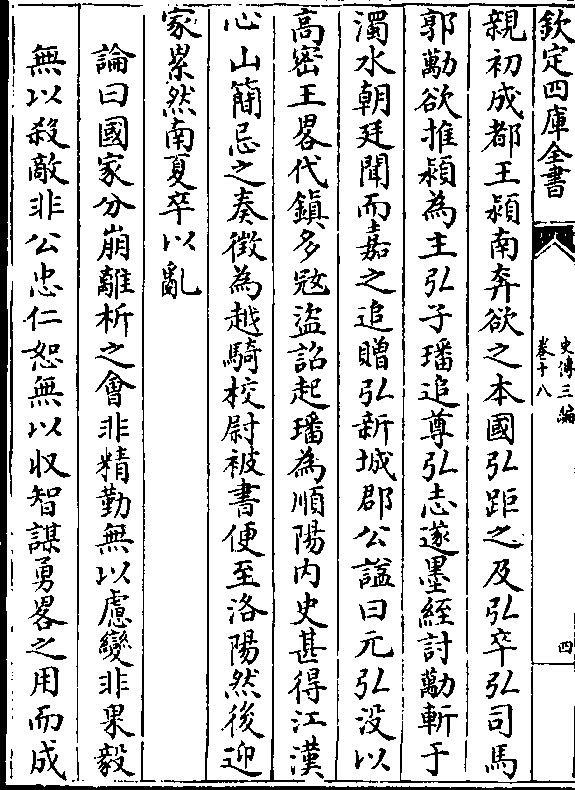 欽定四庫全書
史傳三編
卷十八
四
親初成都王潁南奔欲之本國弘距之及弘卒弘司馬
郭勱欲推潁為主弘子璠追尊弘志遂墨絰討勱斬于
濁水朝廷聞而嘉之追贈弘新城郡公諡曰元弘没以
高密王畧代鎮多㓂盜詔起璠為順陽内史甚得江漢
心山簡忌之奏徵為越騎校尉被書便至洛陽然後迎
家累然南夏卒以亂
論曰國家分崩離析之會非精勤無以慮變非果毅
無以殺敵非公忠仁恕無以収智謀勇畧之用而成